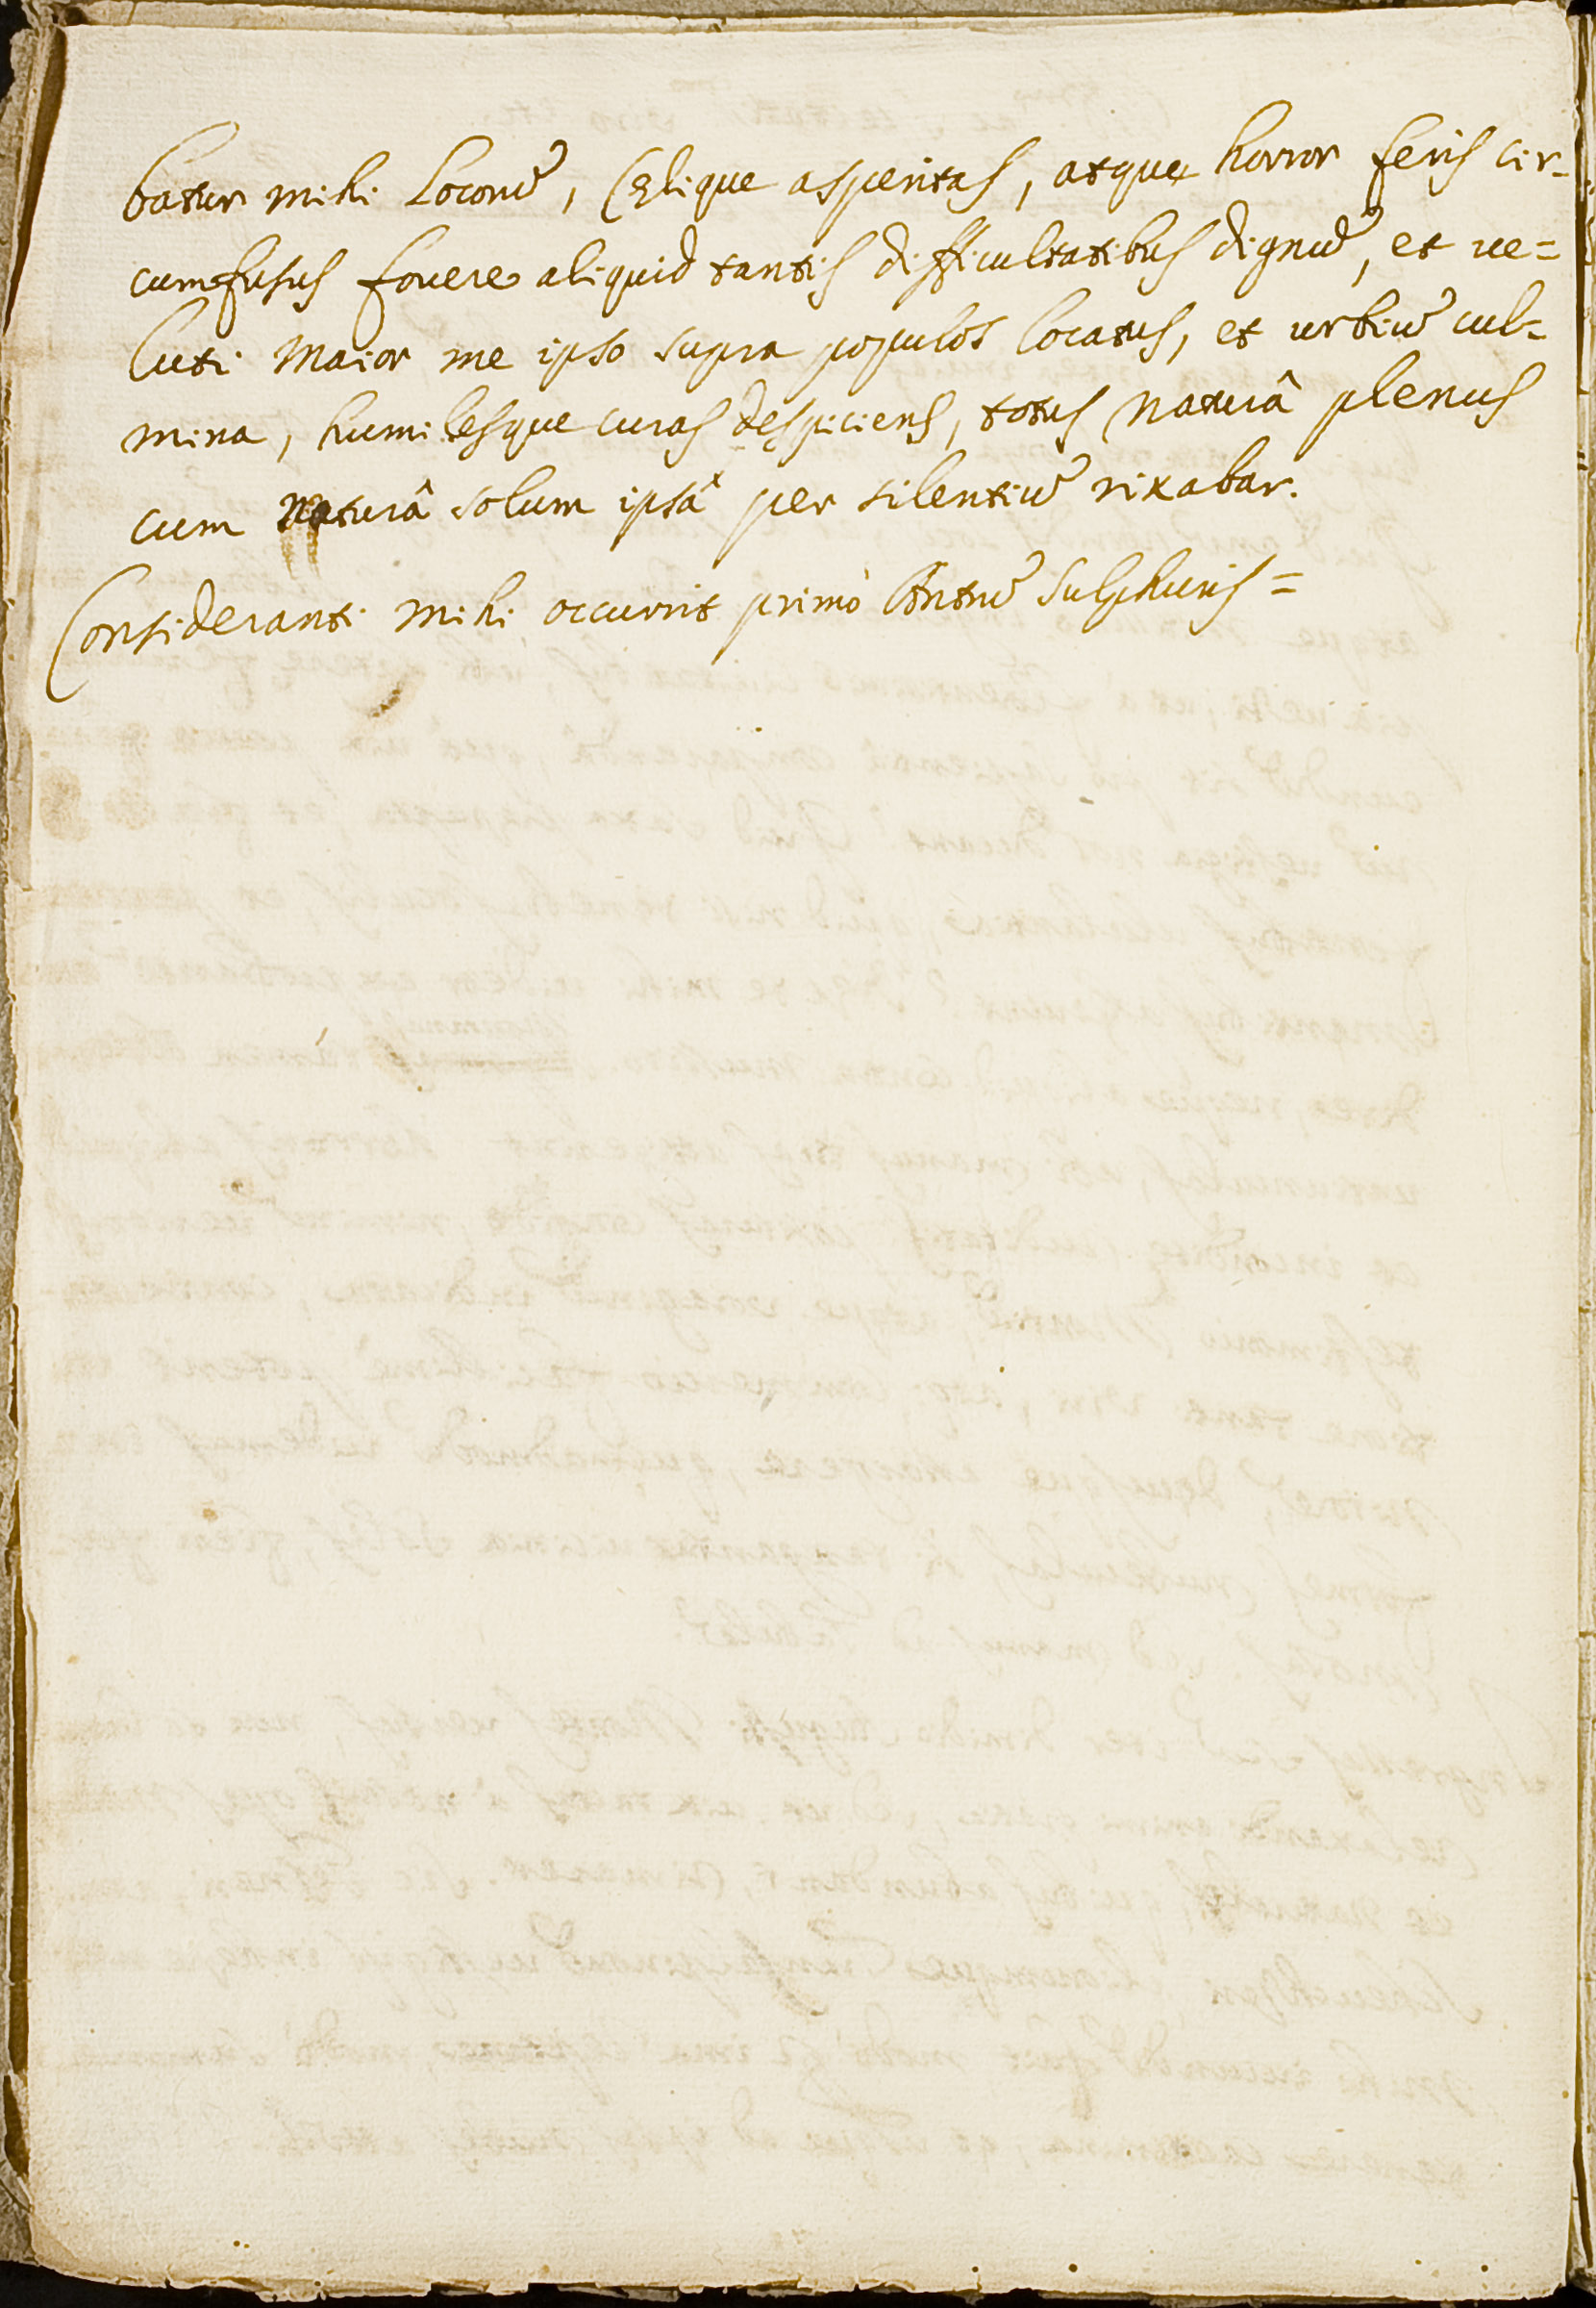 batur mihi Locorũ, Cęlique asperitas, atque horror feris cir-
cumfusus fouere aliquid tantis difficultatibus dignũ, et ue=
luti maior me ipso supra populos locatus, et urbiũ cul-
mina, humilesque curas despiciens, totus naturâ plenus
cum naturâ solum ipsâ per silentiũ rixabar.
Consideranti mihi occurrit primò Antrũ Sulphuris=